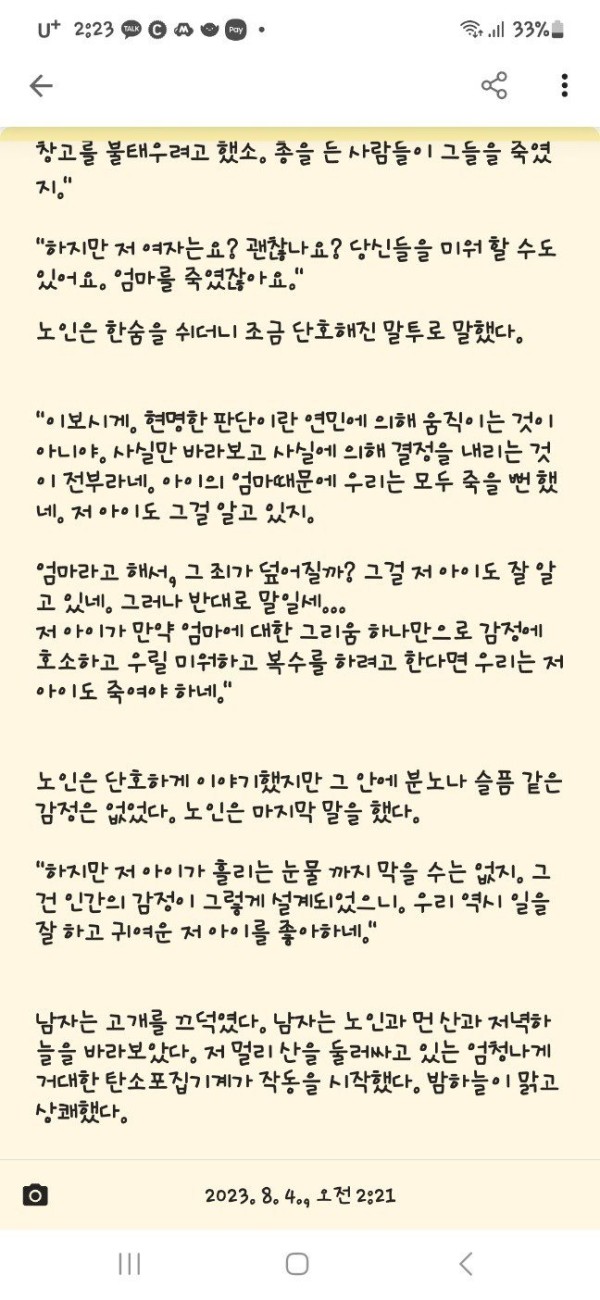 U+ 2:23 TALK C Pay 33%
창고를 불태우려고 했소. 총을 든 사람들이 그들을 죽였
지."
"하지만 저 여자는요? 괜찮나요? 당신들을 미워 할 수도
있어요. 엄마를 죽였잖아요."
노인은 한숨을 쉬더니 조금 단호해진 말투로 말했다.
"이보시게. 현명한 판단이란 연민에 의해 움직이는 것이
아니야. 사실만 바라보고 사실에 의해 결정을 내리는 것
이 전부라네. 아이의 엄마때문에 우리는 모두 죽을 뻔 했
네. 저 아이도 그걸 알고 있지.
엄마라고 해서, 그 죄가 덮어질까? 그걸 저 아이도 잘 알
고 있네. 그러나 반대로 말일세...
저 아이가 만약 엄마에 대한 그리움 하나만으로 감정에
호소하고 우릴 미워하고 복수를 하려고 한다면 우리는 저
아이도 죽여야 하네."
노인은 단호하게 이야기했지만 그 안에 분노나 슬픔 같은
감정은 없었다. 노인은 마지막 말을 했다.
"하지만 저 아이가 흘리는 눈물 까지 막을 수는 없지. 그
건 인간의 감정이 그렇게 설계되었으니. 우리 역시 일을
잘 하고 귀여운 저 아이를 좋아하네."
남자는 고개를 끄덕였다. 남자는 노인과 먼 산과 저녁하
늘을 바라보았다. 저 멀리 산을 둘러싸고 있는 엄청나게
거대한 탄소포집기계가 작동을 시작했다. 밤하늘이 맑고
상쾌했다.
2023. 8. 4., 오전 2:21